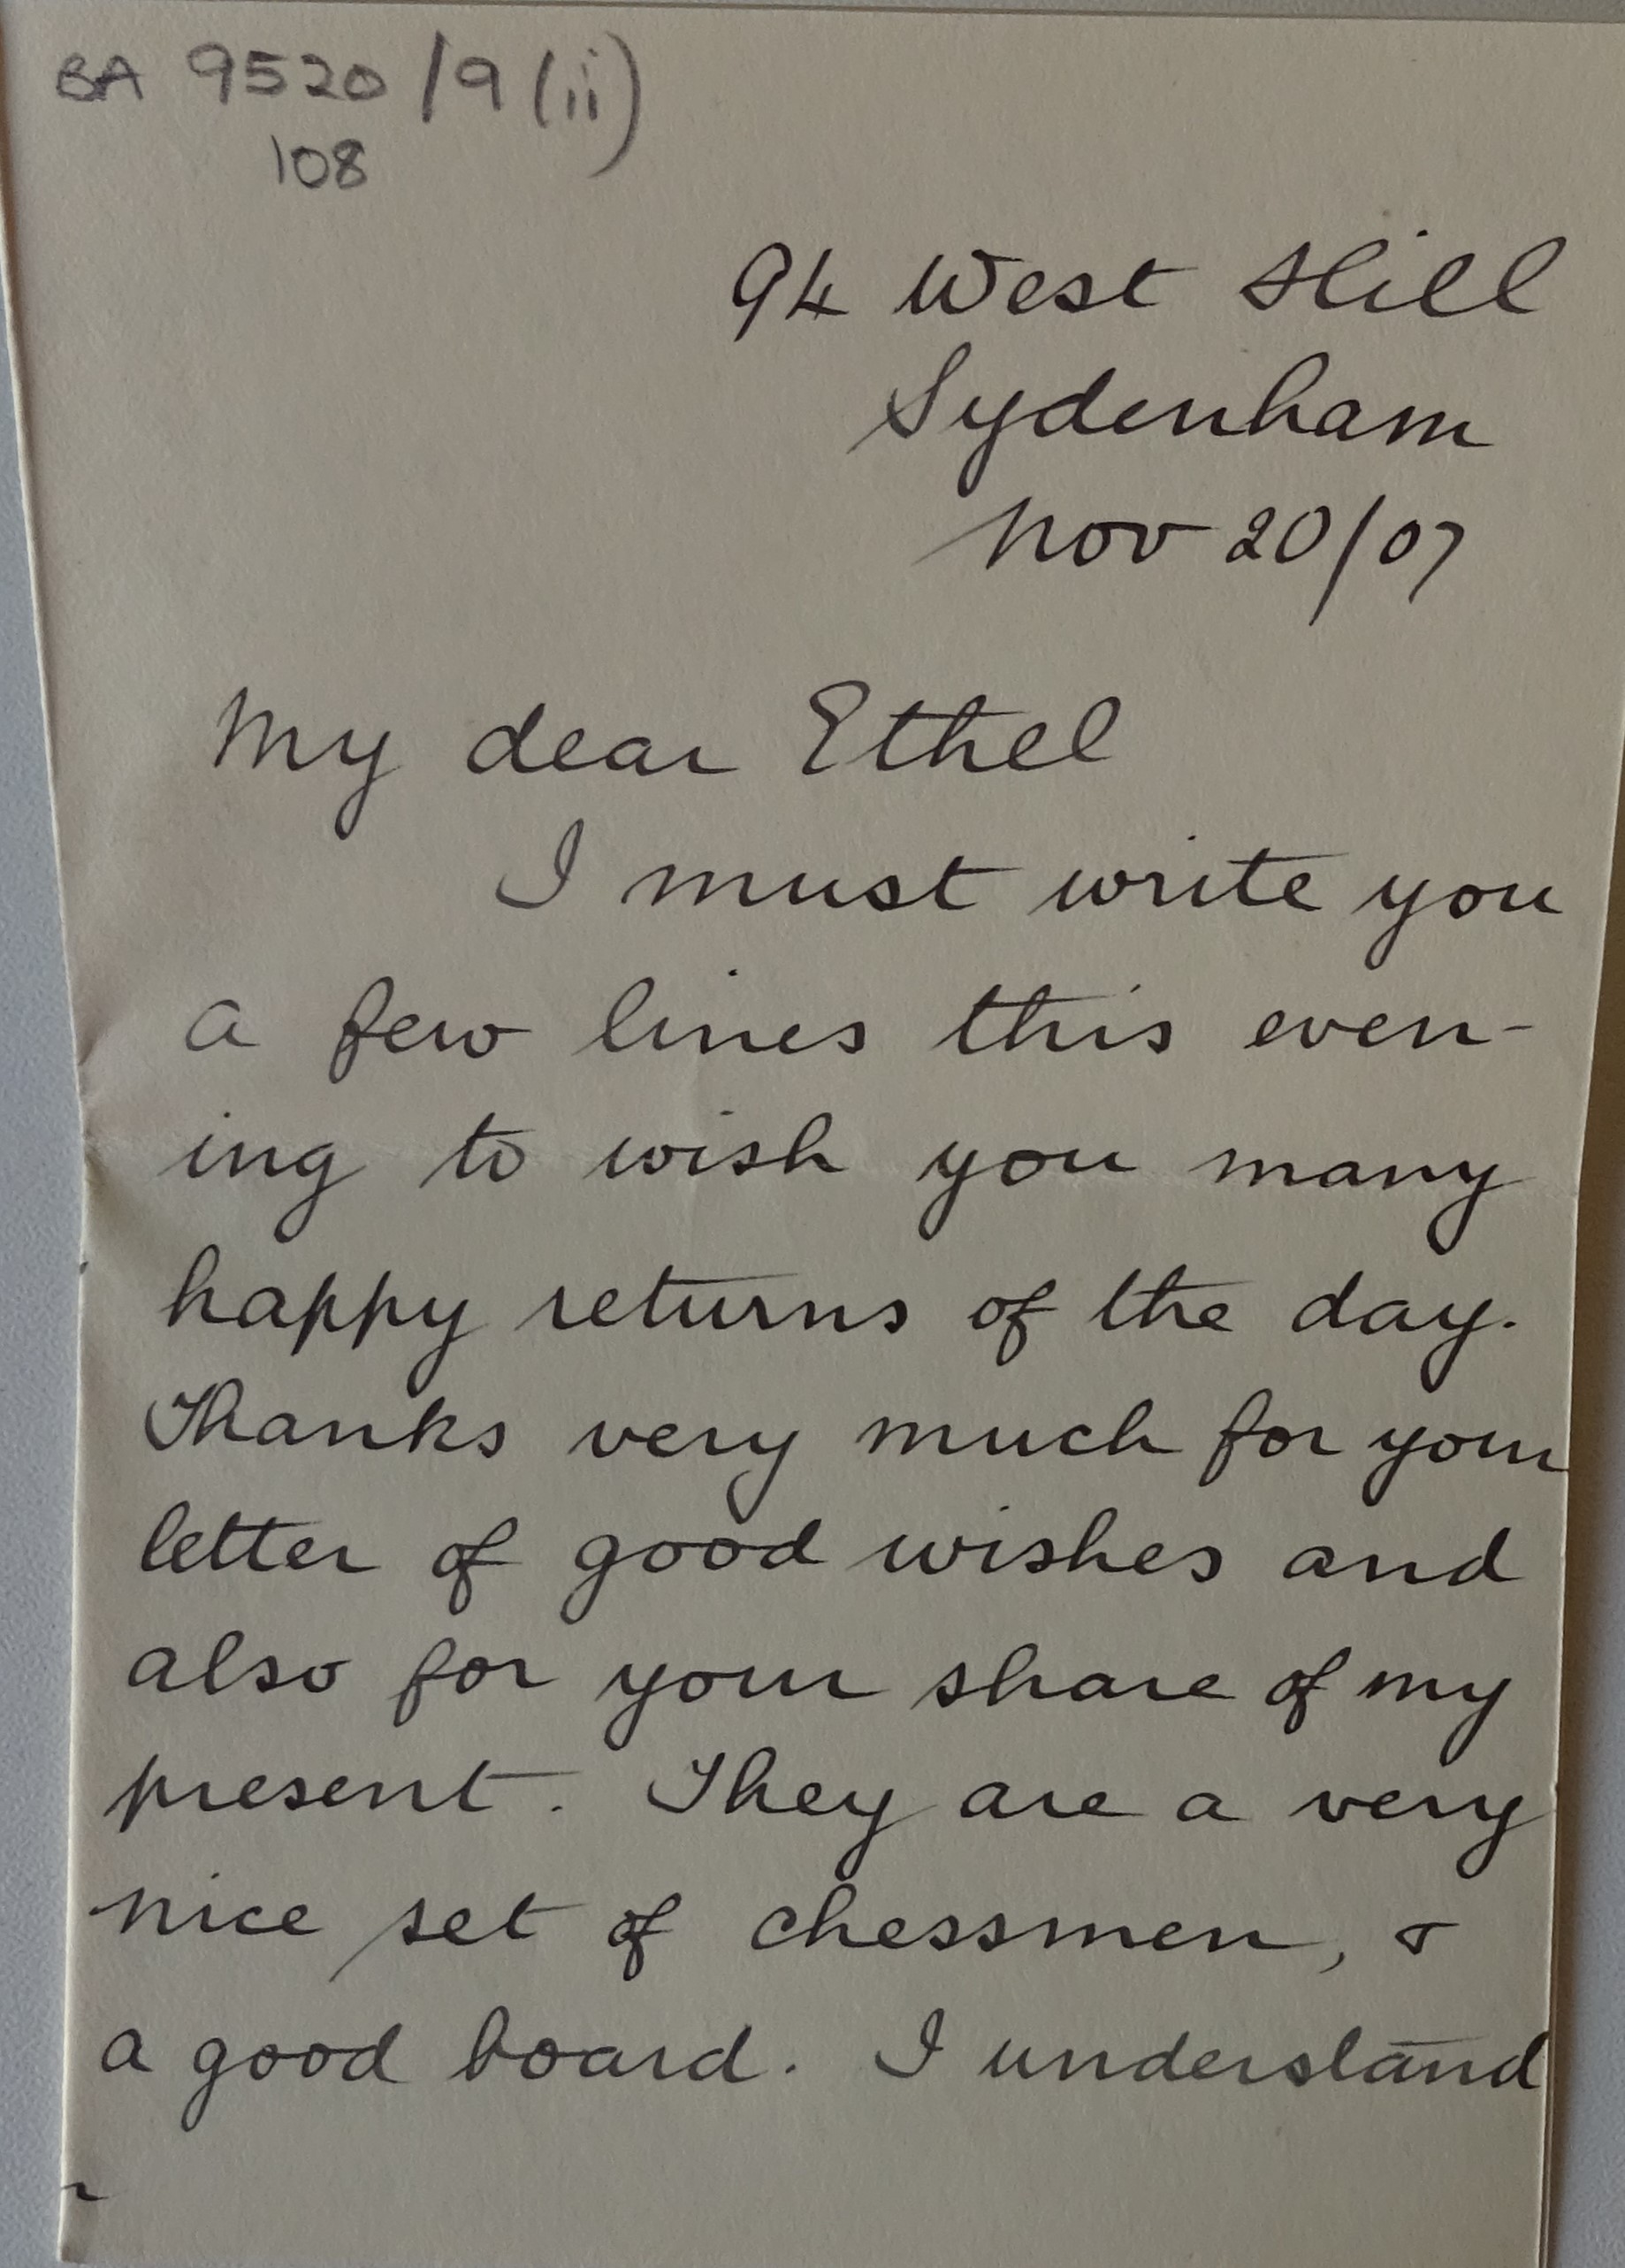 BA 9520/9(ii)
108
94 West Hill
Sydenham
Nov 20/07
My dear Ethel
I must write you
a few lines this even-
ing to wish you many
happy returns of the day.
Thanks very much for your
letter of good wishes and
also for your share of my
present. They are a very
nice set of chessmen, &
a good board. I understand